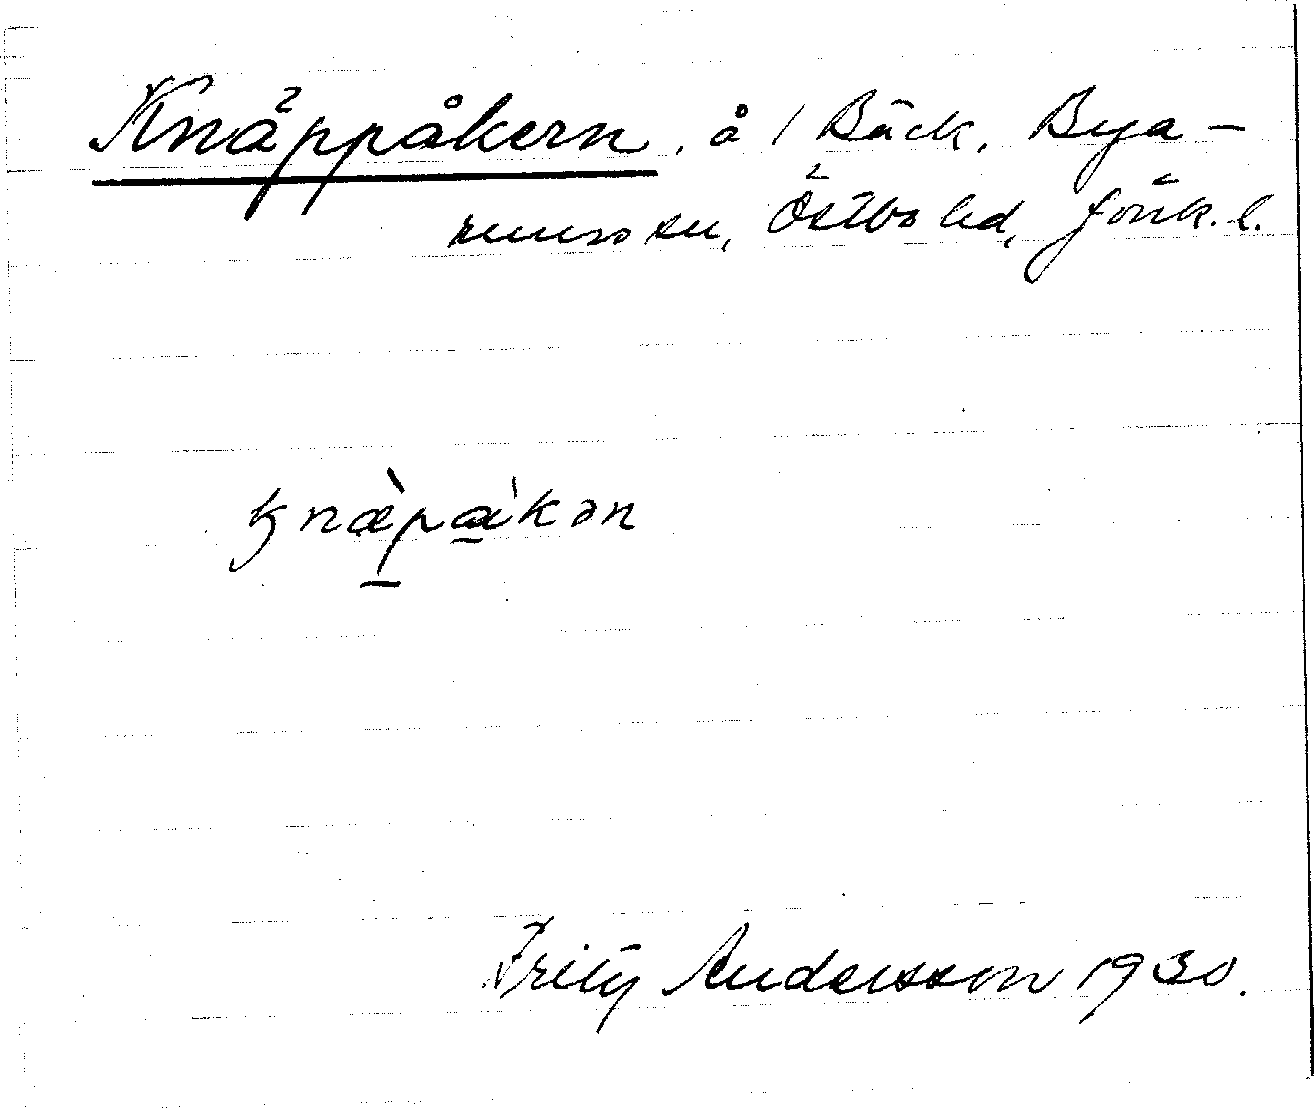 Knäppåkern, å / Bäck, Bya-
rums sn, Östbo hd, Jönk. l.
knæ̀pàkən
Fritz Andersson 1930.